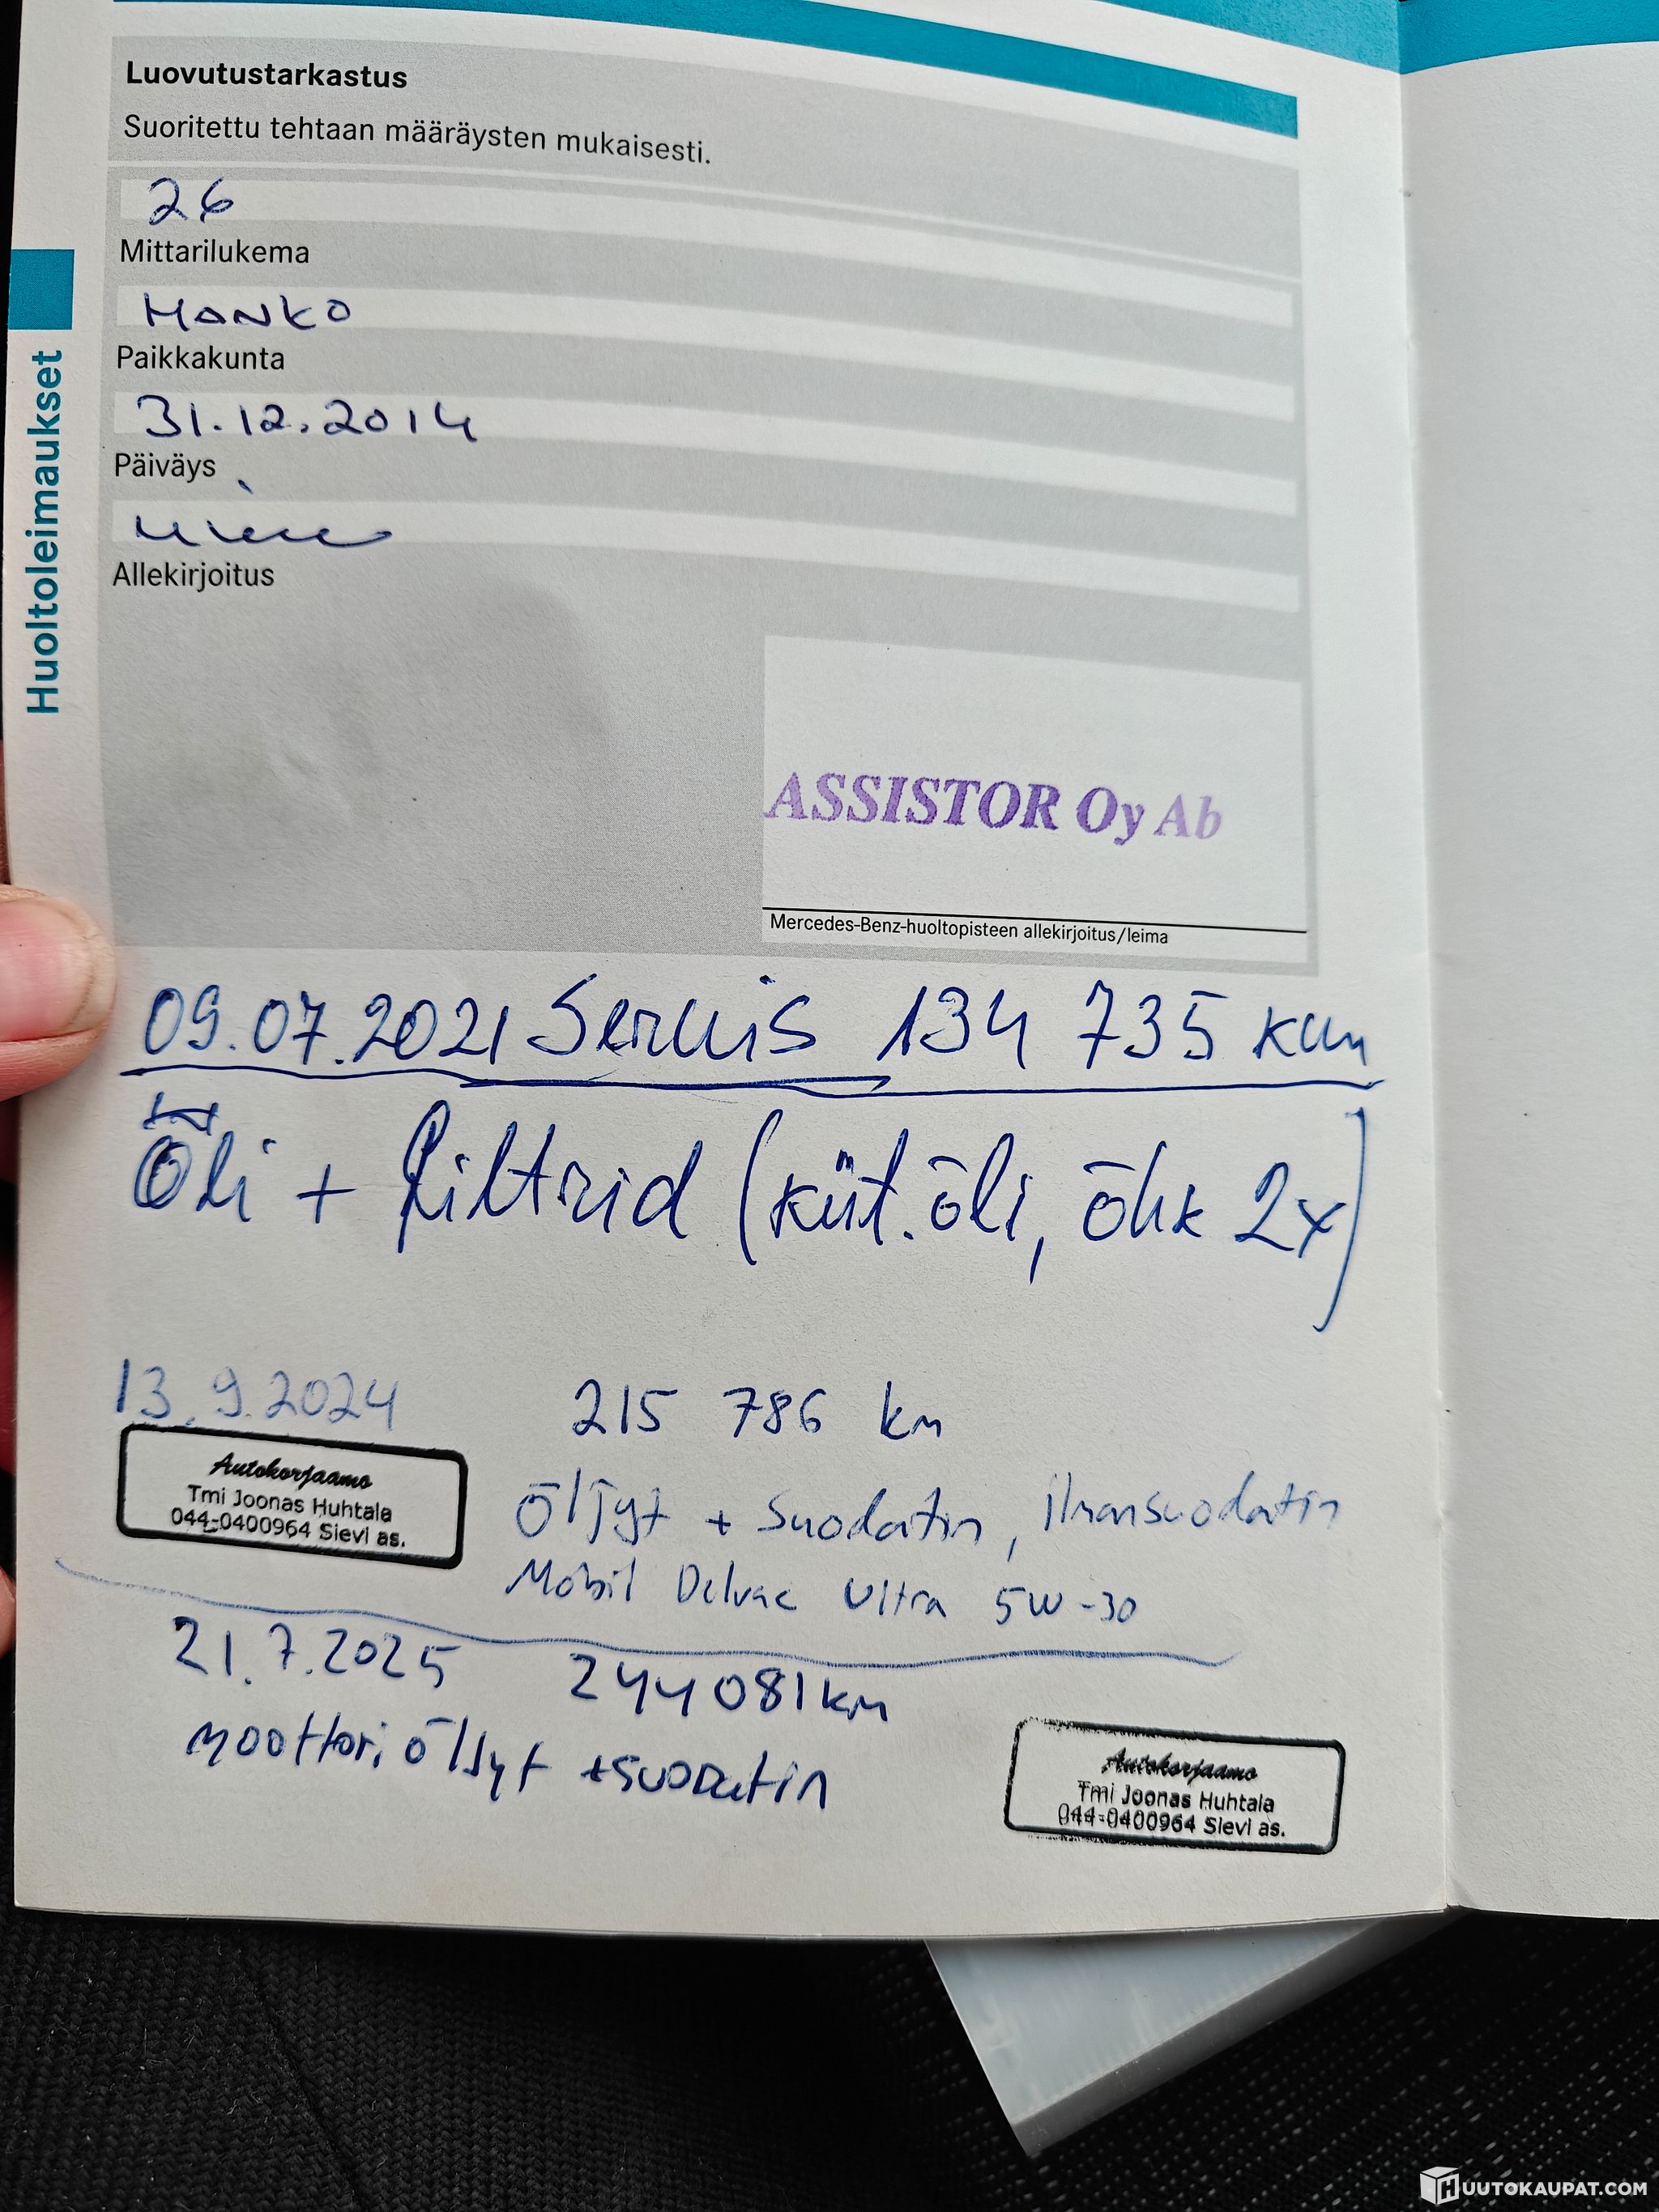 Luovutustarkastus
Suoritettu tehtaan määräysten mukaisesti.
26
Mittarilukema
HANKO
Paikkakunta
31.12.2014
Päiväys
Allekirjoitus
Huoltoleimaukset
ASSISTOR Oy Ab
Mercedes-Benz-huoltopisteen allekirjoitus/leima
09.07.2021 Servis 134 735 km
Õli + filtrid (küt. õli, õhk 2x)
13.9.2024 215 786 km
Autokorjaamo
Tmi Joonas Huhtala
044-0400964 Sievi as.
Öljyt + suodatin, ilmansuodatin
Mobil Delvac Ultra 5W-30
21.7.2025 244081km
moottori öljyt +suodatin
Autokorjaamo
Tmi Joonas Huhtala
044-0400964 Sievi as.
HUUTOKAUPAT.COM